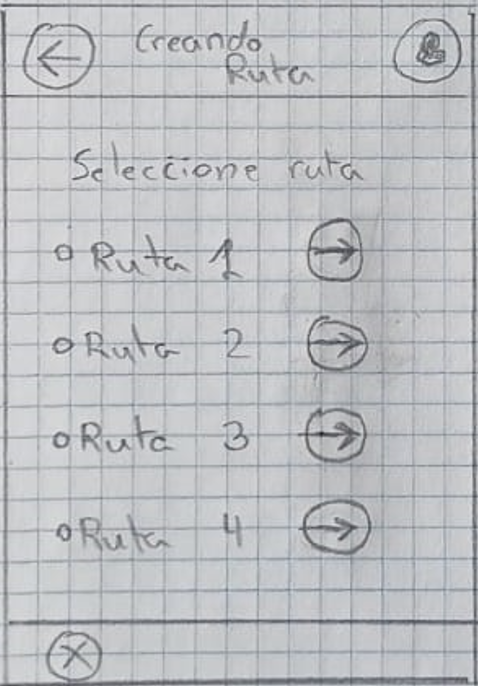 Creando
Ruta
Seleccione ruta
Ruta 1
Ruta 2
Ruta 3
Ruta 4